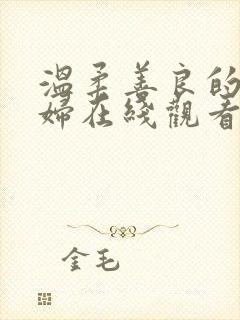 溫柔善良的
婦在綫觀看
金毛